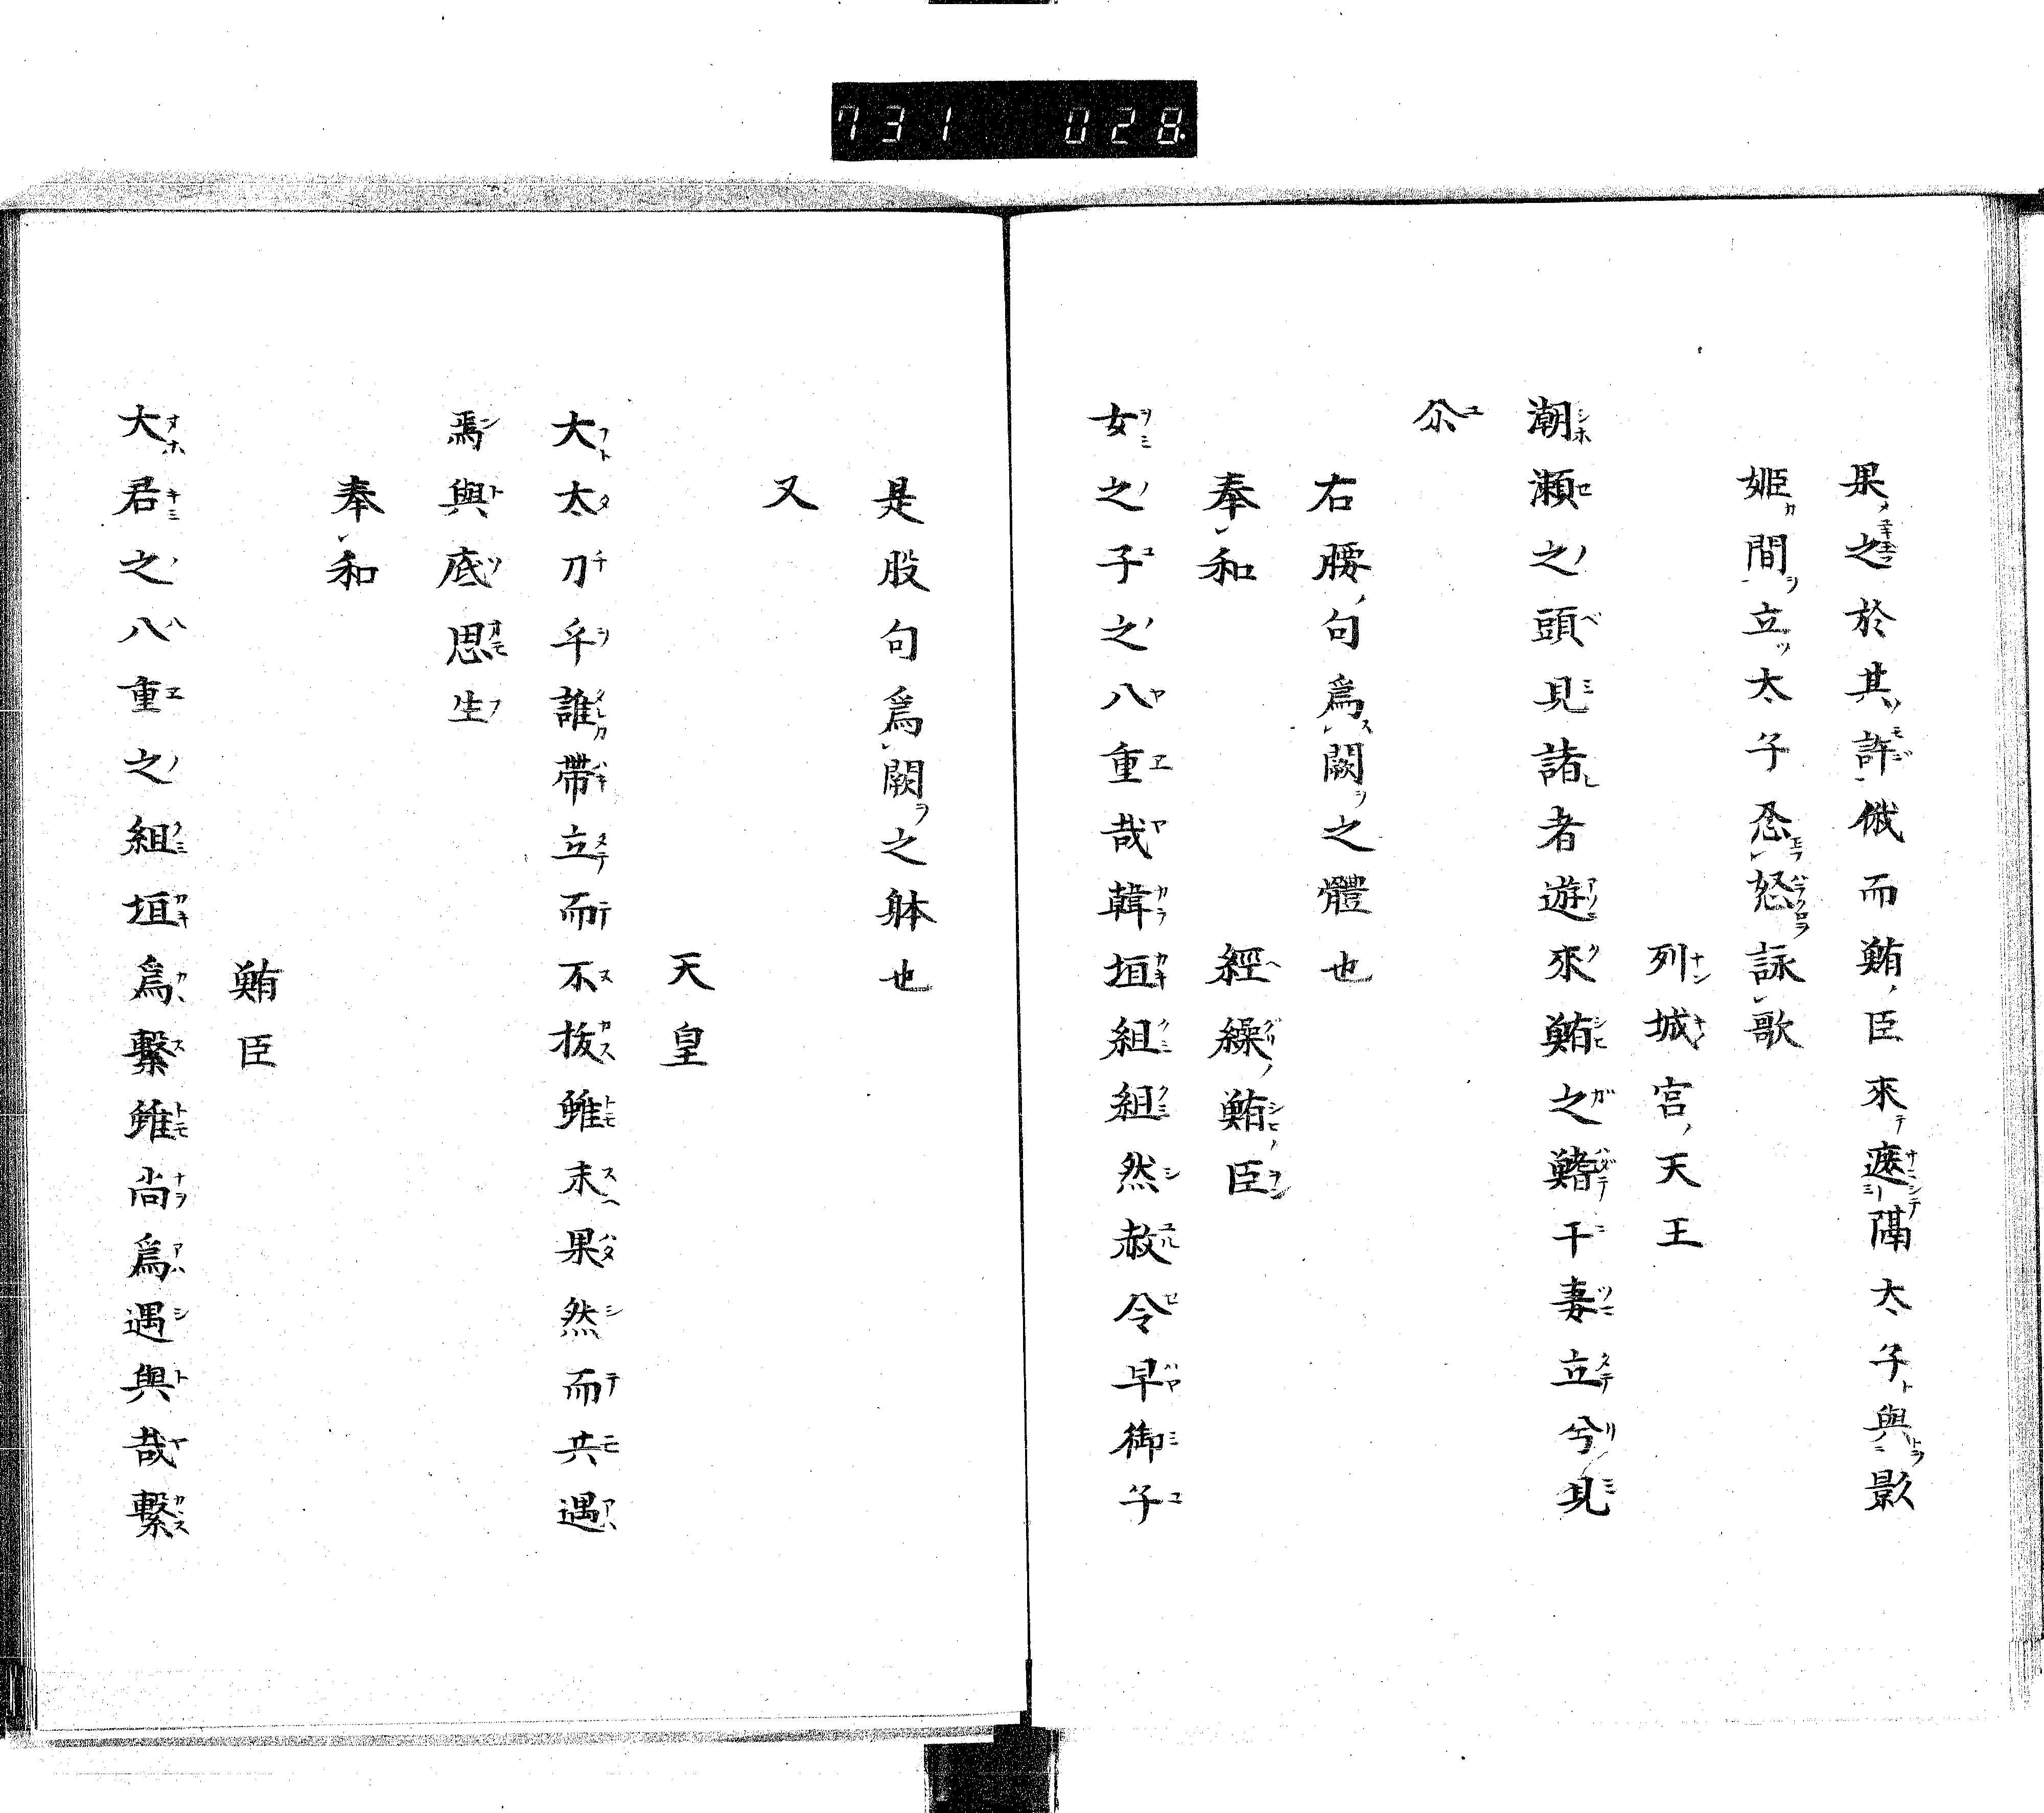 731 028
果之於其許俄而鮪臣來遮隔太子與影
姬間立太子忍怒詠歌
列城宮天王
潮瀬之頭見諸者遊來鮪之鰭干妻立兮見
尒
右腰句爲闕之體也
奉和
經繰鮪臣
女之子之八重哉韓垣組組然赦令早御子
是股句爲闕之躰也
又
天皇
大太刀乎誰帶立而不抜雖末果然而共遇
焉與底思生
奉和
鮪臣
大君之八重之組垣爲繋雖尚爲遇與哉繋